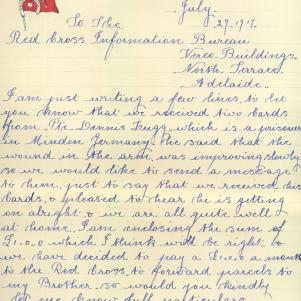 July.
To The.
29.1917.
Red Cross Information Bureau
Verco Buildings.
North Terrace
Adelaide.
I am just writing a few lines to let
you know that we received two Cards
from Pte. Dennis Fugg, which is a prisoner
in Minden Germany. He said that the
wound in the arm, was improving slowly
so we would like to send a message
to them, just to say that we received his
Cards, & pleased to hear he is getting
on alright & we are all quite well
at home. I am enclosing the sum of
£1.0.0 which I think will be right. So
we have decided to pay a £1.0.0 a month
to the Red Cross, to forward parcels to
my Brother, so would you kindly
let me know full particulars